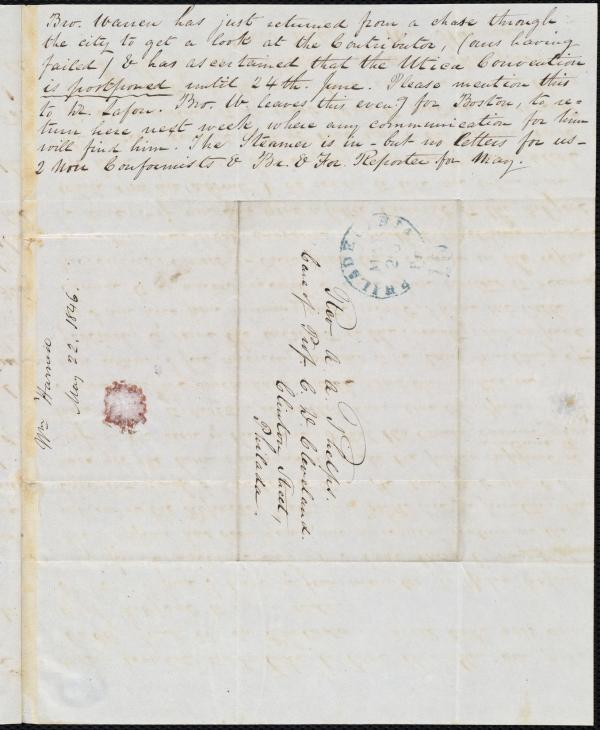 Bro. Warren has just returned from a chase through
the city to get a look at the Contributor, (ours having
failed) & has ascertained that the Utica Convention
is postponed until 24th. June. Please mention this
to Dr. Lafon. Bro. W. leaves this eveng for Boston, to re-
turn here next week, where any communication for him
will find him. The Steamer is in - but no letters for us -
2 Non Conformists & Br. & For. Reporter for May.
PHILADE
MAY
Rev A A Phelps.
Care of Prof. C. D. Cleveland.
Clinton Street,
Philada.
May 22, 1846.
Wm Harned